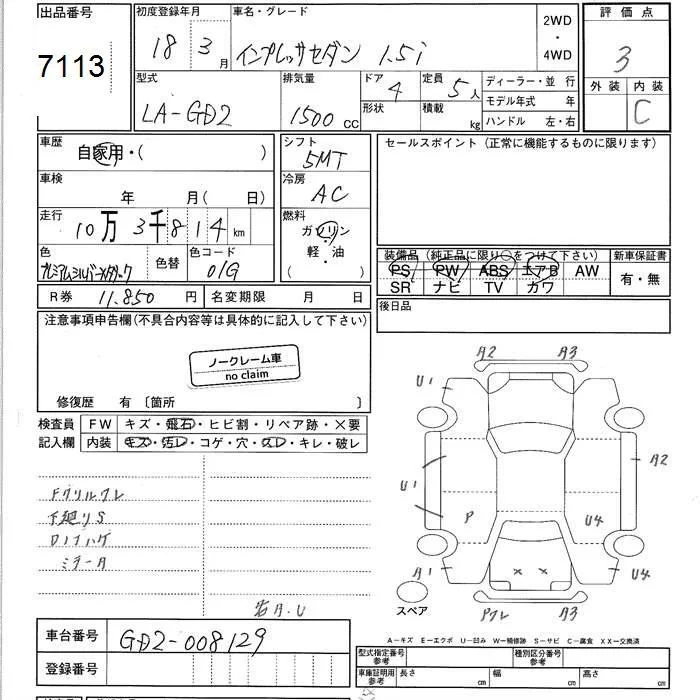 出品番号
7113
初度登録年月
18 3月
車名・グレード
インプレッサセダン 1.5i
2WD
・
4WD
評価点
3
外装 内装
C
型式
LA-GD2
排気量
1500cc
ドア 4
形状
定員 5人
積載 kg
ディーラー・並行
モデル年式 年
ハンドル 左・右
車歴
自家用・( )
シフト
5MT
セールスポイント(正常に機能するものに限ります)
車検
年 月( 日)
冷房
AC
走行
10万3千814km
燃料
ガソリン
軽・油
( )
色
プレミアムシルバーメタリック
色替
色コード
01G
装備品(純正品に限り○をつけて下さい)
PS PW ABS エアB AW
SR ナビ TV カワ
新車保証書
有・無
R券 11.850円
名変期限 月 日
後日品
注意事項申告欄(不具合内容等は具体的に記入して下さい)
ノークレーム車
no claim
修復歴 有〔箇所 〕
検査員
記入欄
FW キズ・飛石・ヒビ割・リペア跡・×要
内装 キズ・汚レ・コゲ・穴・スレ・キレ・破レ
Fグリルワレ
下廻りS
ミラーA
右A.U
A2 A3
U1
A2
U1
P U4
A1 U4
× ×
スペア
A3
A-キズ E-エクボ U-凹み W-補修跡 S-サビ C-腐食 XX-交換済
車台番号
GD2-008129
登録番号
型式指定番号
参考
種別区分番号
参考
車庫証明用
参考
長さ cm
幅 cm
高さ cm